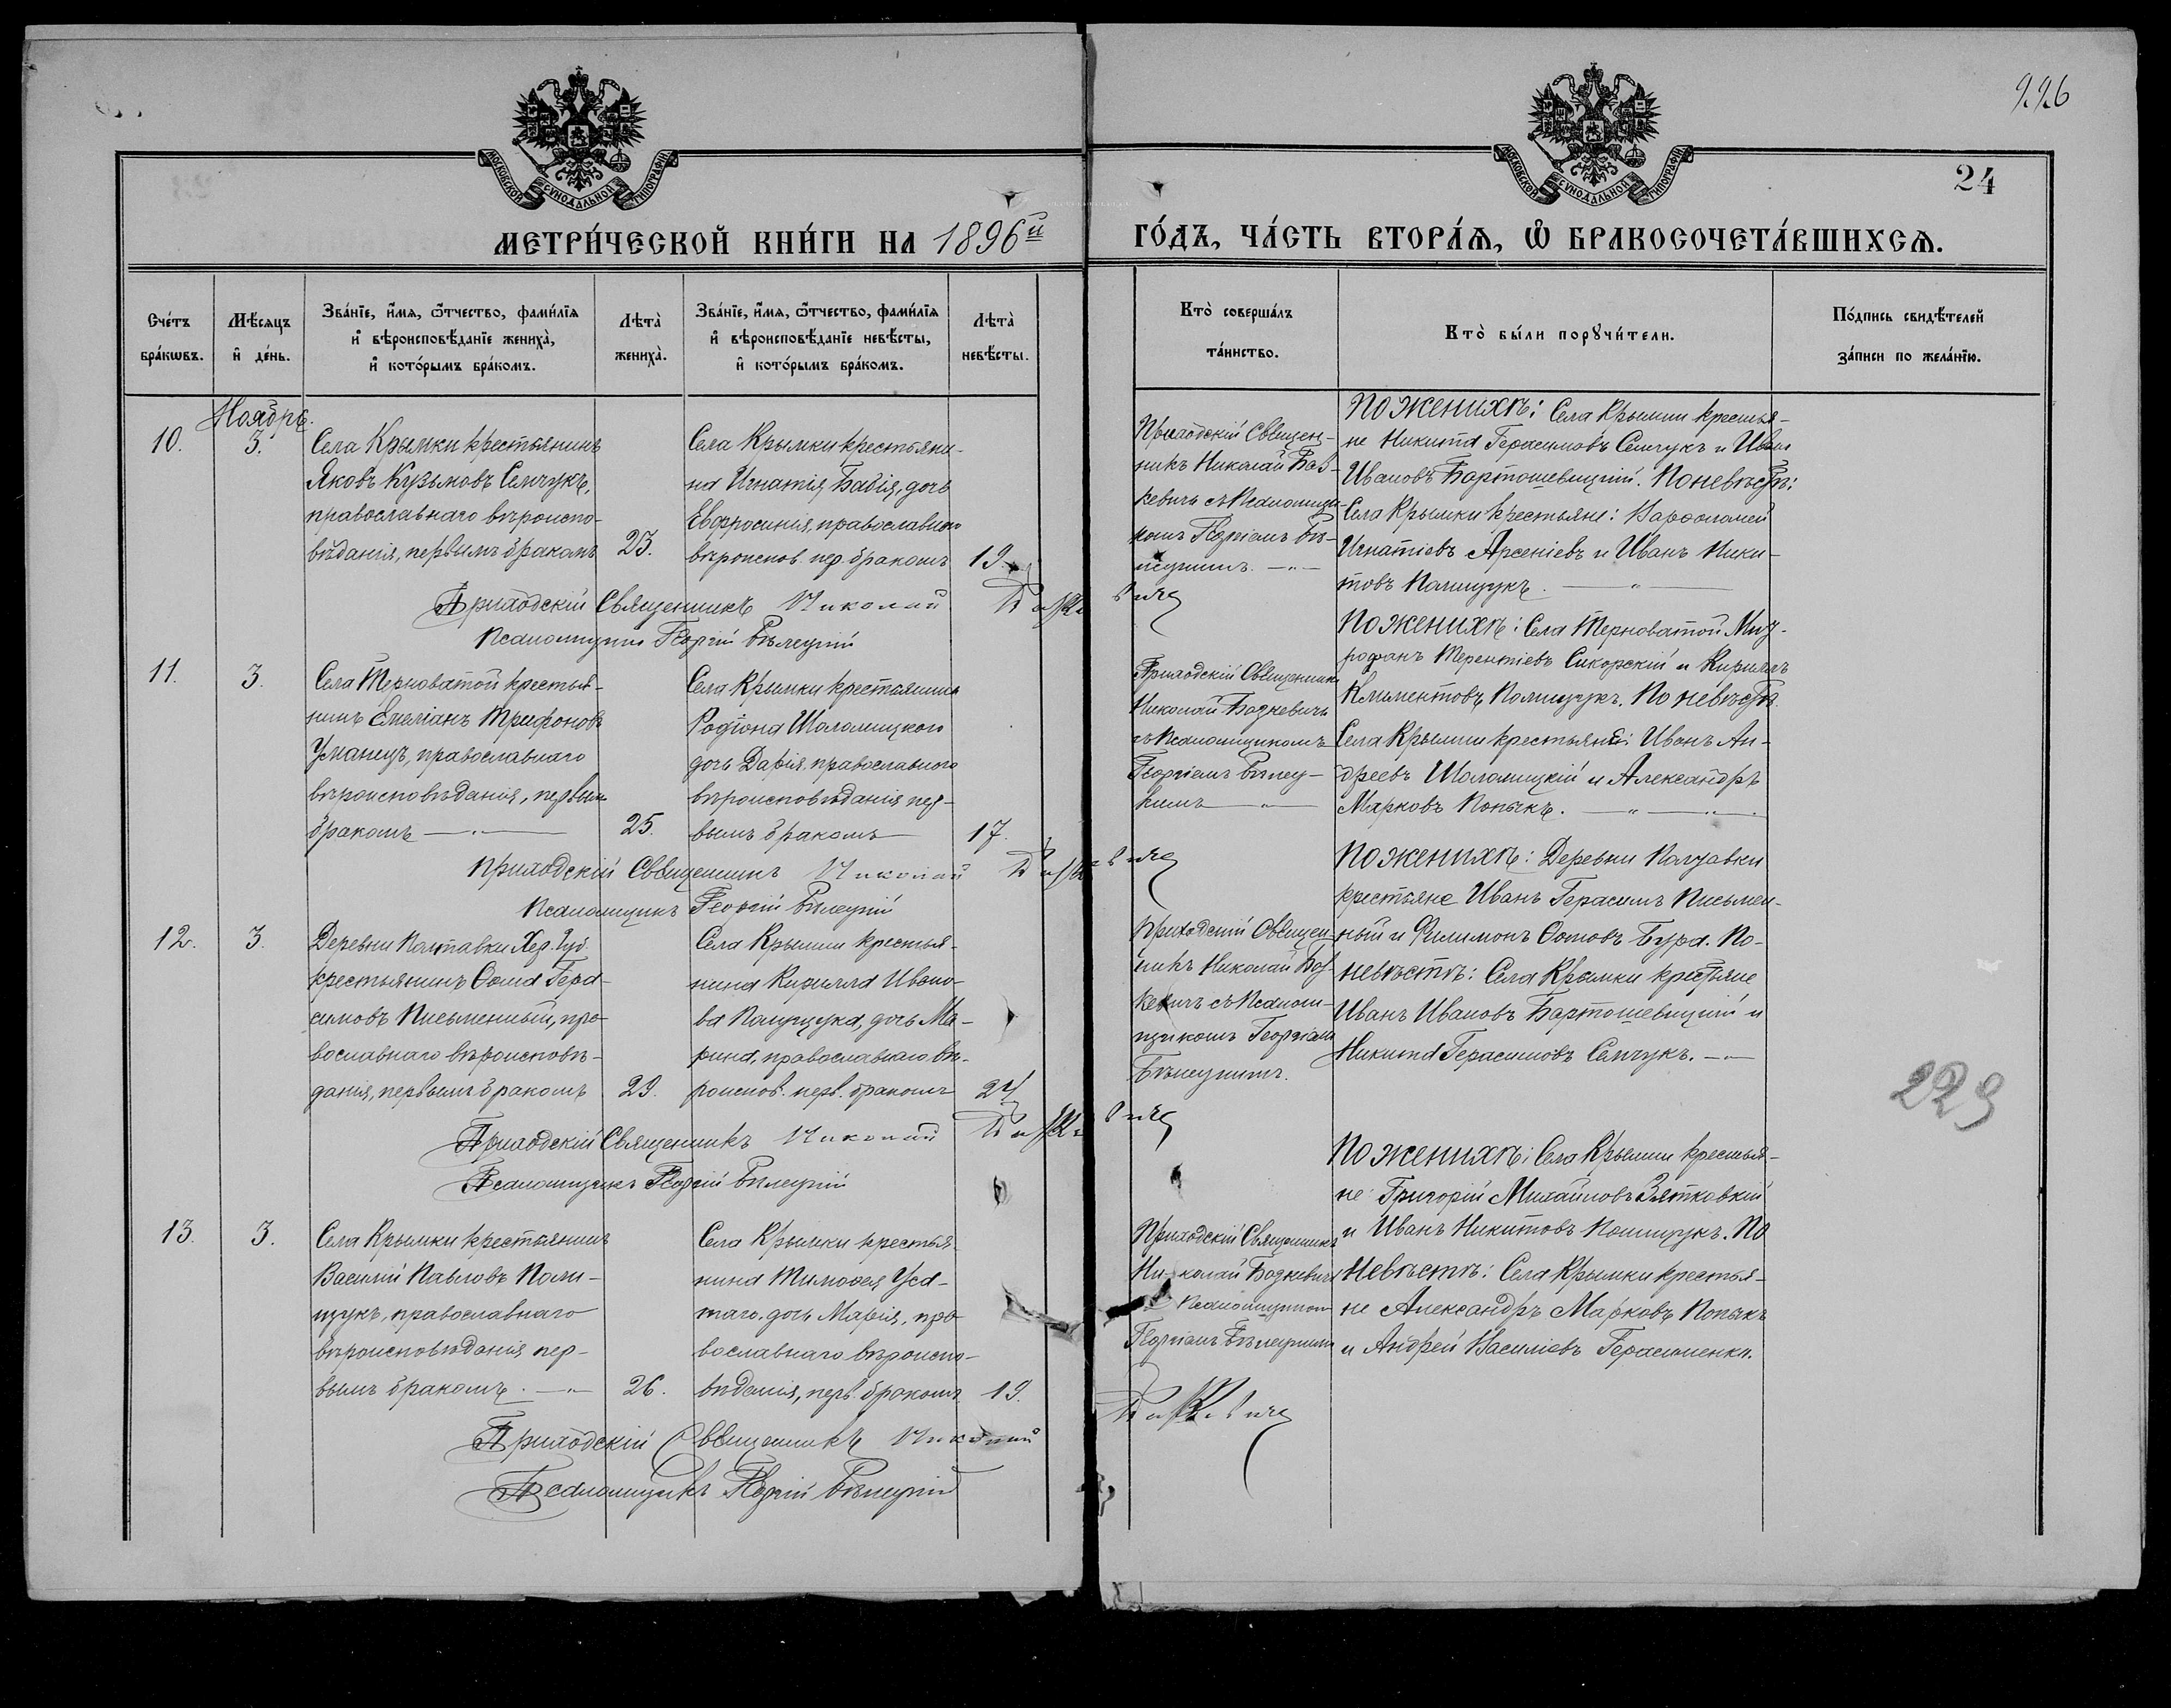 226
МОСКОВСКОЙ СѴНОДАЛЬНОЙ ТИПОГРАФІИ
МОСКОВСКОЙ СѴНОДАЛЬНОЙ ТИПОГРАФІИ
24
МЕТРИ́ЧЕСКОЙ КНИ́ГИ НА 1896й
ГО́ДЪ, ЧА́СТЬ ВТОРА́Ѧ, Ѽ БРАКОСОЧЕТА́ВШИХСѦ.
Сче́тъ бра́кѡвъ.
Мѣ́сѧцъ и҆ де́нь.
Зва́нїе, и҆́мѧ, ѻ҆́тчество, фами́лїѧ и҆ вѣроисповѣ́данїе жениха̀, и҆ кото́рымъ бра́комъ.
Лѣта̀ жениха̀.
Зва́нїе, и҆́мѧ, ѻ҆́тчество, фами́лїѧ и҆ вѣроисповѣ́данїе невѣ́сты, и҆ кото́рымъ бра́комъ.
Лѣта̀ невѣ́сты.
Кто̀ соверша́лъ та́инство.
Кто̀ бы́ли порꙋчи́тели.
По́дпись свидѣ́телей за́писи по жела́нїю.
Ноябрь.
10.
3.
Села Крымки крестьянинъ
Яковъ Кузьмовъ Семчукъ,
православнаго вѣроиспо-
вѣданія, первымъ бракомъ
25.
Села Крымки крестьяни-
на Игнатія Бабія, дочь
Евфросинія, православнаго
вѣроиспов. пер. бракомъ
19.
Приходскій Священ-
никъ Николай Баз-
кевичъ съ Псаломщи-
комъ Георгіемъ Бѣ-
лецкимъ.
По женихѣ: Села Крымки крестья-
не Никита Герасимовъ Семчукъ и Иванъ
Ивановъ Бартошевицкій. По невѣстѣ:
Села Крымки крестьяне: Варфоломей
Игнатіевъ Арсеніевъ и Иванъ Ники-
товъ Полищукъ.
Приходскій Священникъ Николай Базкевичъ
Псаломщикъ Георгій Бѣлецкій
11.
3.
Села Терноватой крестья-
нинъ Емеліанъ Трифоновъ
Уманецъ, православнаго
вѣроисповѣданія, первымъ
бракомъ
25.
Села Крымки крестьянина
Родіона Шоломицкого
дочь Дарія православного
вѣроисповѣданія пер-
вымъ бракомъ
17.
Приходскій Священникъ
Николай Базкевичъ
съ Псаломщикомъ
Георгіемъ Бѣлец-
кимъ
По женихѣ: Села Терноватой Мит-
рофанъ Терентіевъ Сикорскій и Кириллъ
Климентовъ Полищукъ. По невѣстѣ
Села Крымки крестьяне: Иванъ Ан-
дреевъ Шоломицкій и Александръ
Марковъ Попыкъ.
Приходскій Священникъ Николай Базкевичъ
Псаломщикъ Георгій Бѣлецкій
12.
3.
Деревни Полтавки Хер. Губ.
крестьянинъ Ѳома Гера-
симовъ Письменный, пра-
вославнаго вѣроисповѣ-
данія, первымъ бракомъ
29.
Села Крымки крестья-
нина Кирилла Ивано-
ва Полищука, дочь Ма-
рина, православнаго вѣ-
роиспов. перв. бракомъ
24
Приходскій Священ-
никъ Николай Баз-
кевичъ съ Псалом-
щикомъ Георгіемъ
Бѣлецкимъ.
По женихѣ: Деревни Полтавки
крестьяне Иванъ Герасимъ Письмен-
ный и Филимонъ Бурд. По-
невѣстѣ: Села Крымки крестьяне
Иванъ Ивановъ Бартошевицкій и
Никита Герасимовъ Семчукъ.
229
Приходскій Священникъ Николай Базкевичъ
Псаломщикъ Георгій Бѣлецкій
13.
3.
Села Крымки крестьянинъ
Василій Павловъ Поли-
щукъ, православнаго
вѣроисповѣданія пер-
вымъ бракомъ.
26.
Села Крымки крестья-
нина Тимоѳея Уса-
таго дочь Марія, пра-
вославнаго вѣроиспо-
вѣданія, перв. бракомъ
19.
Приходскій Священникъ
Николай Базкевичъ
съ Псаломщикомъ
Георгіемъ Бѣлецкимъ
По женихѣ: Села Крымки крестья-
не Григорій Михайловъ Зятковскій
и Иванъ Никитовъ Полищукъ. По
невѣстѣ: Села Крымки крестья-
не Александръ Марковъ Попыкъ
и Андрей Василіевъ Герасименко.
Приходскій Священникъ Николай Базкевичъ
Псаломщикъ Георгій Бѣлецкій